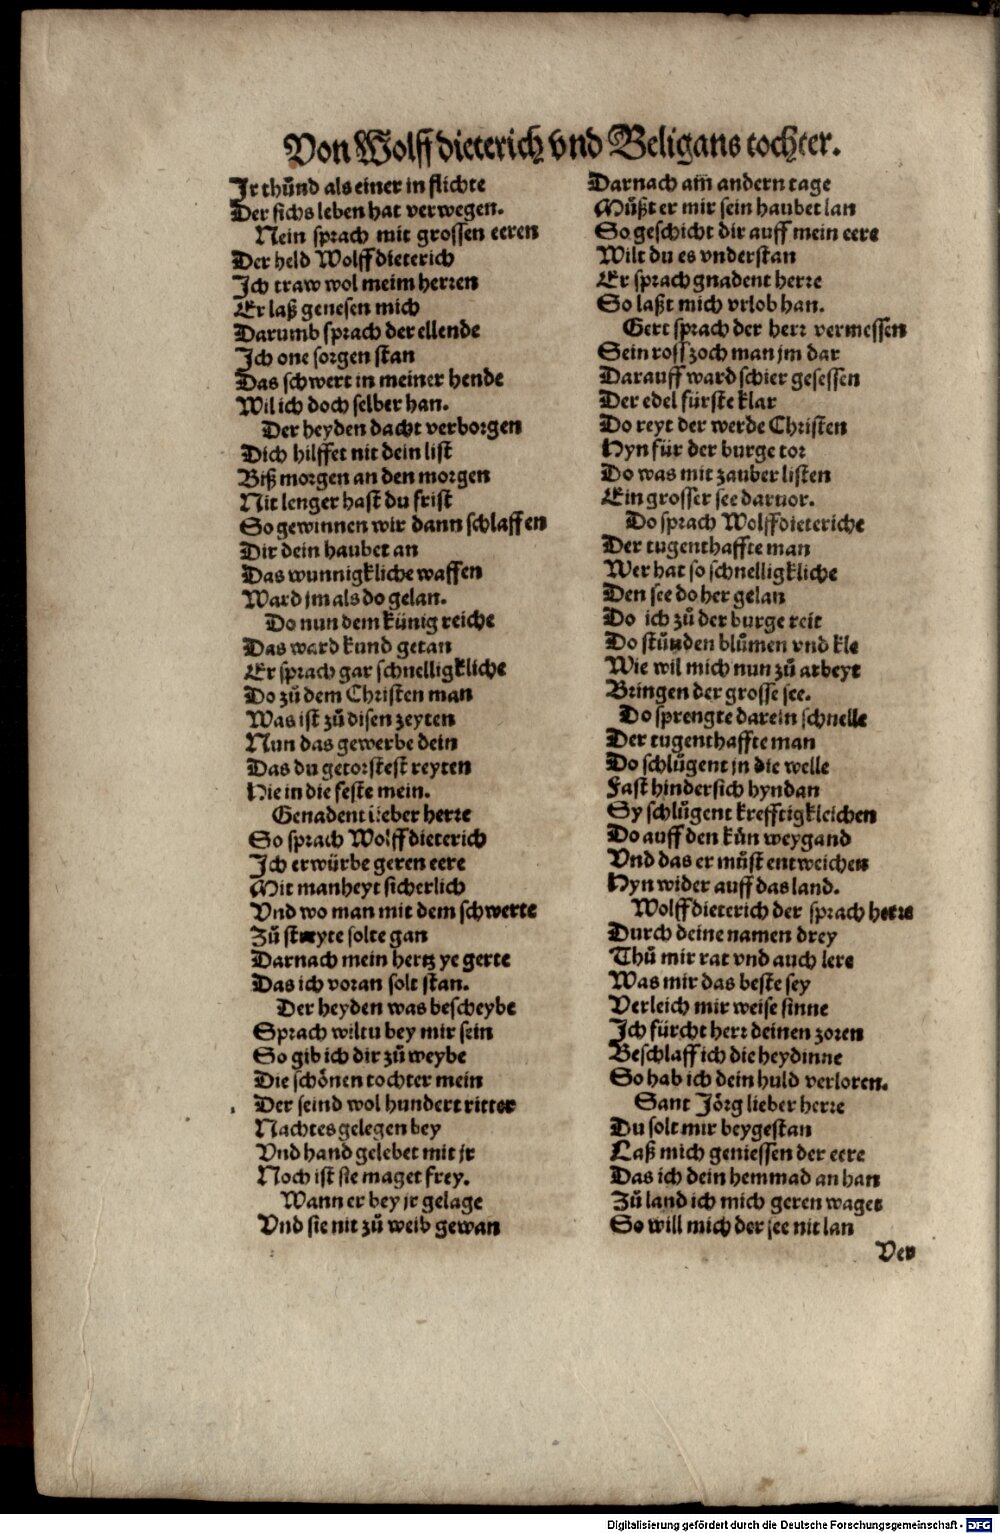 Von Wolffdieterich vnd Beligans tochter.
Ir thůnd als einer in flichte
Der sichs leben hat verwegen.
Nein sprach mit grossen eeren
Der held Wolffdieterich
Ich traw wol meim herren
Er laß genesen mich
Darumb sprach der ellende
Ich one sorgen stan
Das schwert in meiner hende
Wil ich doch selber han.
Der heyden dacht verborgen
Dich hilffet nit dein list
Biß morgen an den morgen
Nit lenger hast du frist
So gewinnen wir dann schlaffen
Dir dein haubet an
Das wunnigkliche waffen
Ward jm als do gelan.
Do nun dem künig reiche
Das ward kund getan
Er sprach gar schnelligkliche
Do zů dem Christen man
Was ist zů disen zeyten
Nun das gewerbe dein
Das du getorstest reyten
Hie in die feste mein.
Genadent lieber herre
So sprach Wolffdieterich
Ich erwürbe geren eere
Mit manheyt sicherlich
Vnd wo man mit dem schwerte
Zů streyte solte gan
Darnach mein hertz ye gerte
Das ich voran solt stan.
Der heyden was bescheybe
Sprach wiltu bey mir sein
So gib ich dir zů weybe
Die schönen tochter mein
Der seind wol hundert ritter
Nachtes gelegen bey
Vnd hand gelebet mit jr
Noch ist sie maget frey.
Wann er bey jr gelage
Vnd sie nit zů weib gewan
Darnach am̄ andern tage
Můßt er mir sein haubet lan
So geschicht dir auff mein eere
Wilt du es vnderstan
Er sprach gnadent herre
So laßt mich vrlob han.
Gert sprach der herr vermessen
Sein roß zoch man jm dar
Darauff ward schier gesessen
Der edel fürste klar
Do reyt der werde Christen
Hyn für der burge tor
Do was mit zauber listen
Ein grosser see daruor.
Do sprach Wolffdieteriche
Der tugenthaffte man
Wer hat so schnelligkliche
Den see do her gelan
Do ich zů der burge reit
Do stůnden blůmen vnd kle
Wie wil mich nun zů arbeyt
Bringen der grosse see.
Do sprengte darein schnelle
Der tugenthaffte man
Do schlůgent in die welle
Fast hindersich hyndan
Sy schlůgent krefftigkleichen
Do auff den kün weygand
Vnd das er můst entweichen
Hyn wider auff das land.
Wolffdieterich der sprach herre
Durch deine namen drey
Thů mir rat vnd auch lere
Was mir das beste sey
Verleich mir weise sinne
Ich fürcht herr deinen zoren
Beschlaff ich die heydinne
So hab ich dein huld verloren.
Sant Jörg lieber herre
Du solt mir beygestan
Laß mich geniessen der eere
Das ich dein hemmad an han
Zů land ich mich geren wages
So will mich der see nit lan
Ver
Digitalisierung gefördert durch die Deutsche Forschungsgemeinschaft - DFG